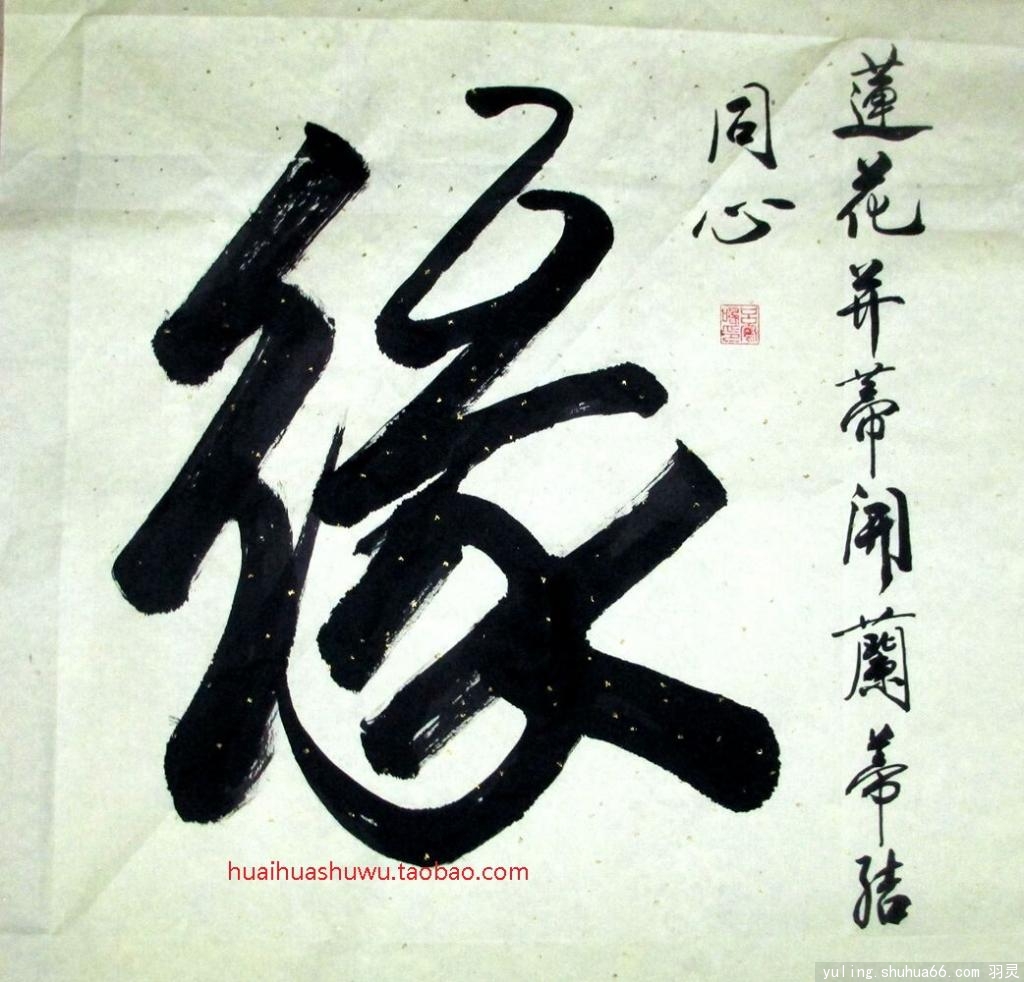 蓮花并蒂開蘭蒂結
同心
緣
huaihuashuwu.taobao.com
yuling.shuhua66.com 羽灵